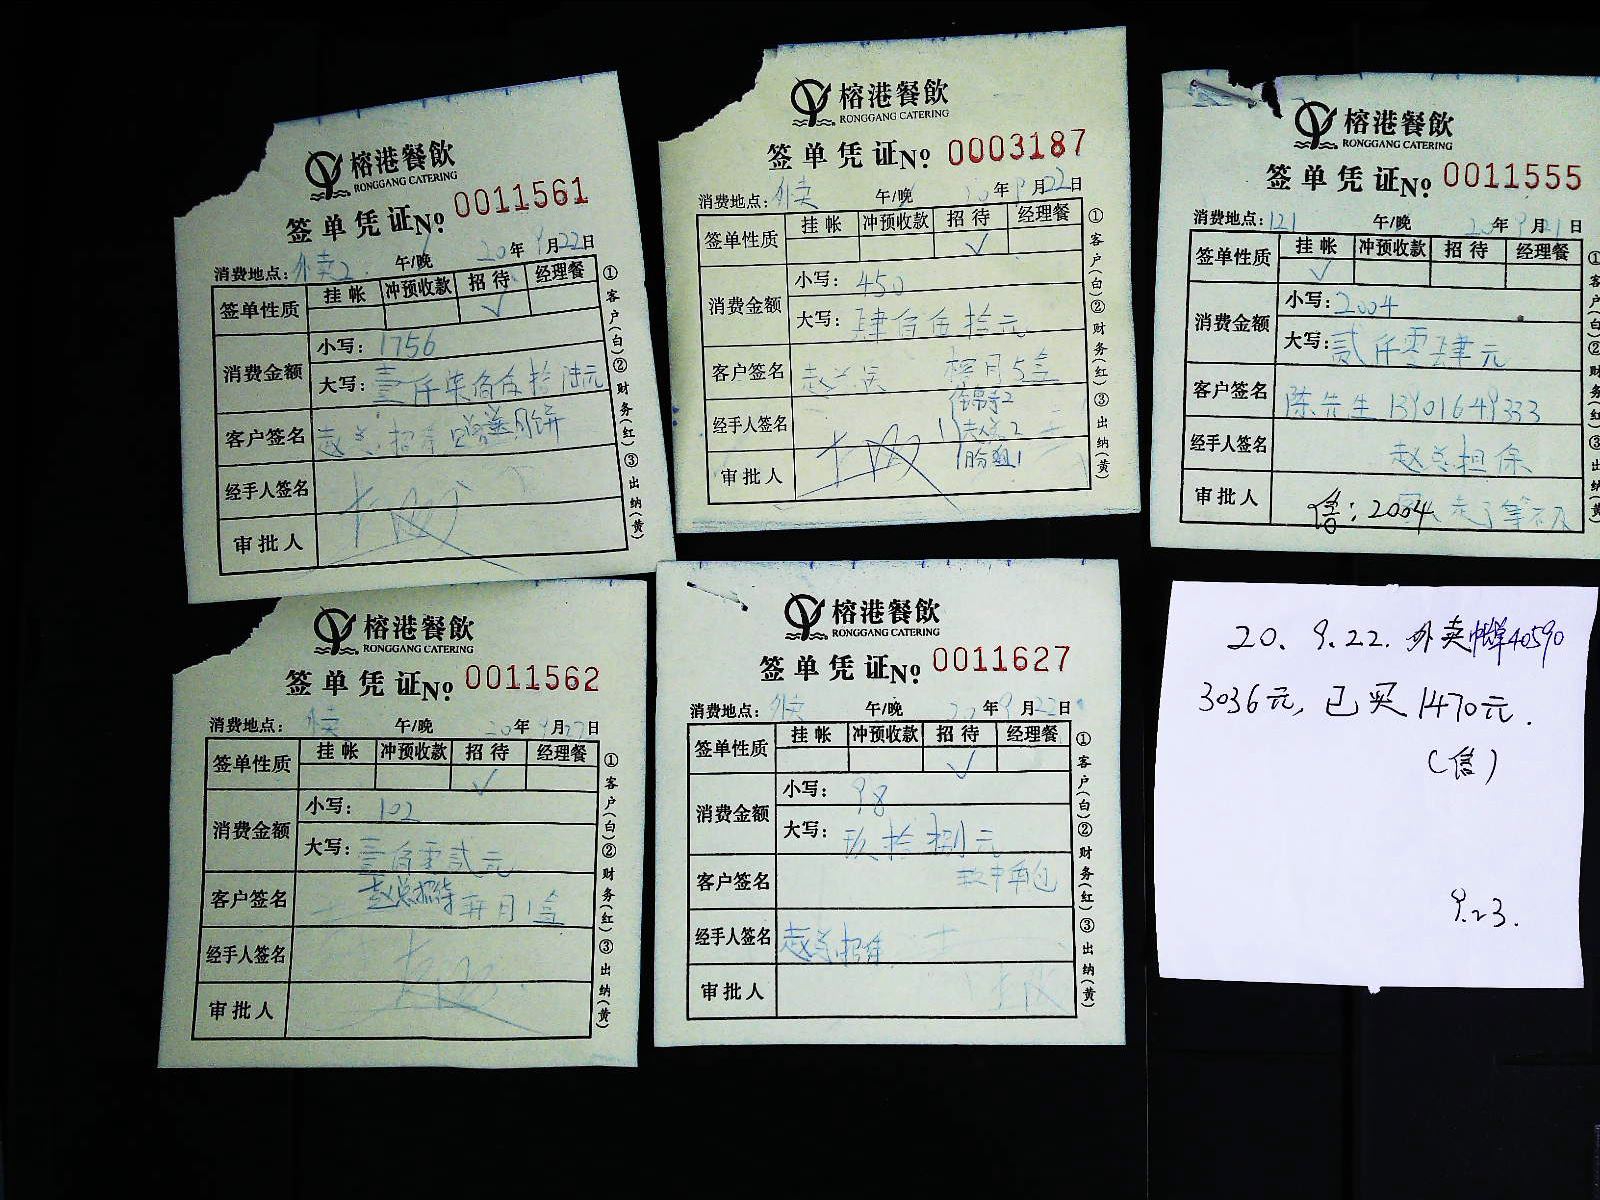 榕港餐飲
RONGGANG CATERING
签单凭证№ 0011561
消费地点: 外卖2 午/晚 20年9月22日
签单性质 挂帐 冲预收款 招待 经理餐
✓
消费金额 小写: 1756
大写: 壹仟柒佰伍拾陆元
客户签名 赵总招待 月饼
经手人签名
审批人
①客户(白)②财务(红)③出纳(黄)
榕港餐飲
RONGGANG CATERING
签单凭证№ 0003187
消费地点: 外卖 午/晚 20年9月22日
签单性质 挂帐 冲预收款 招待 经理餐
✓
消费金额 小写: 450
大写: 肆佰伍拾元
客户签名 榕月5盒
经手人签名
审批人
①客户(白)②财务(红)③出纳(黄)
榕港餐飲
RONGGANG CATERING
签单凭证№ 0011555
消费地点: 121 午/晚 20年9月21日
签单性质 挂帐 冲预收款 招待 经理餐
✓
消费金额 小写: 2004
大写: 贰仟零肆元
客户签名 陈先生 13901649333
经手人签名 赵总担保
审批人 售: 2004
榕港餐飲
RONGGANG CATERING
签单凭证№ 0011562
消费地点: 外卖 午/晚 20年9月27日
签单性质 挂帐 冲预收款 招待 经理餐
✓
消费金额 小写: 102
大写: 壹佰零贰元
客户签名 赵总招待 月1盒
经手人签名
审批人
①客户(白)②财务(红)③出纳(黄)
榕港餐飲
RONGGANG CATERING
签单凭证№ 0011627
消费地点: 外卖 午/晚 20年9月22日
签单性质 挂帐 冲预收款 招待 经理餐
✓
消费金额 小写: 98
大写: 玖拾捌元
客户签名
经手人签名 赵总招待
审批人
①客户(白)②财务(红)③出纳(黄)
20. 9.22. 外卖帐单40590
3036元, 已买1470元.
(信)
9.23.